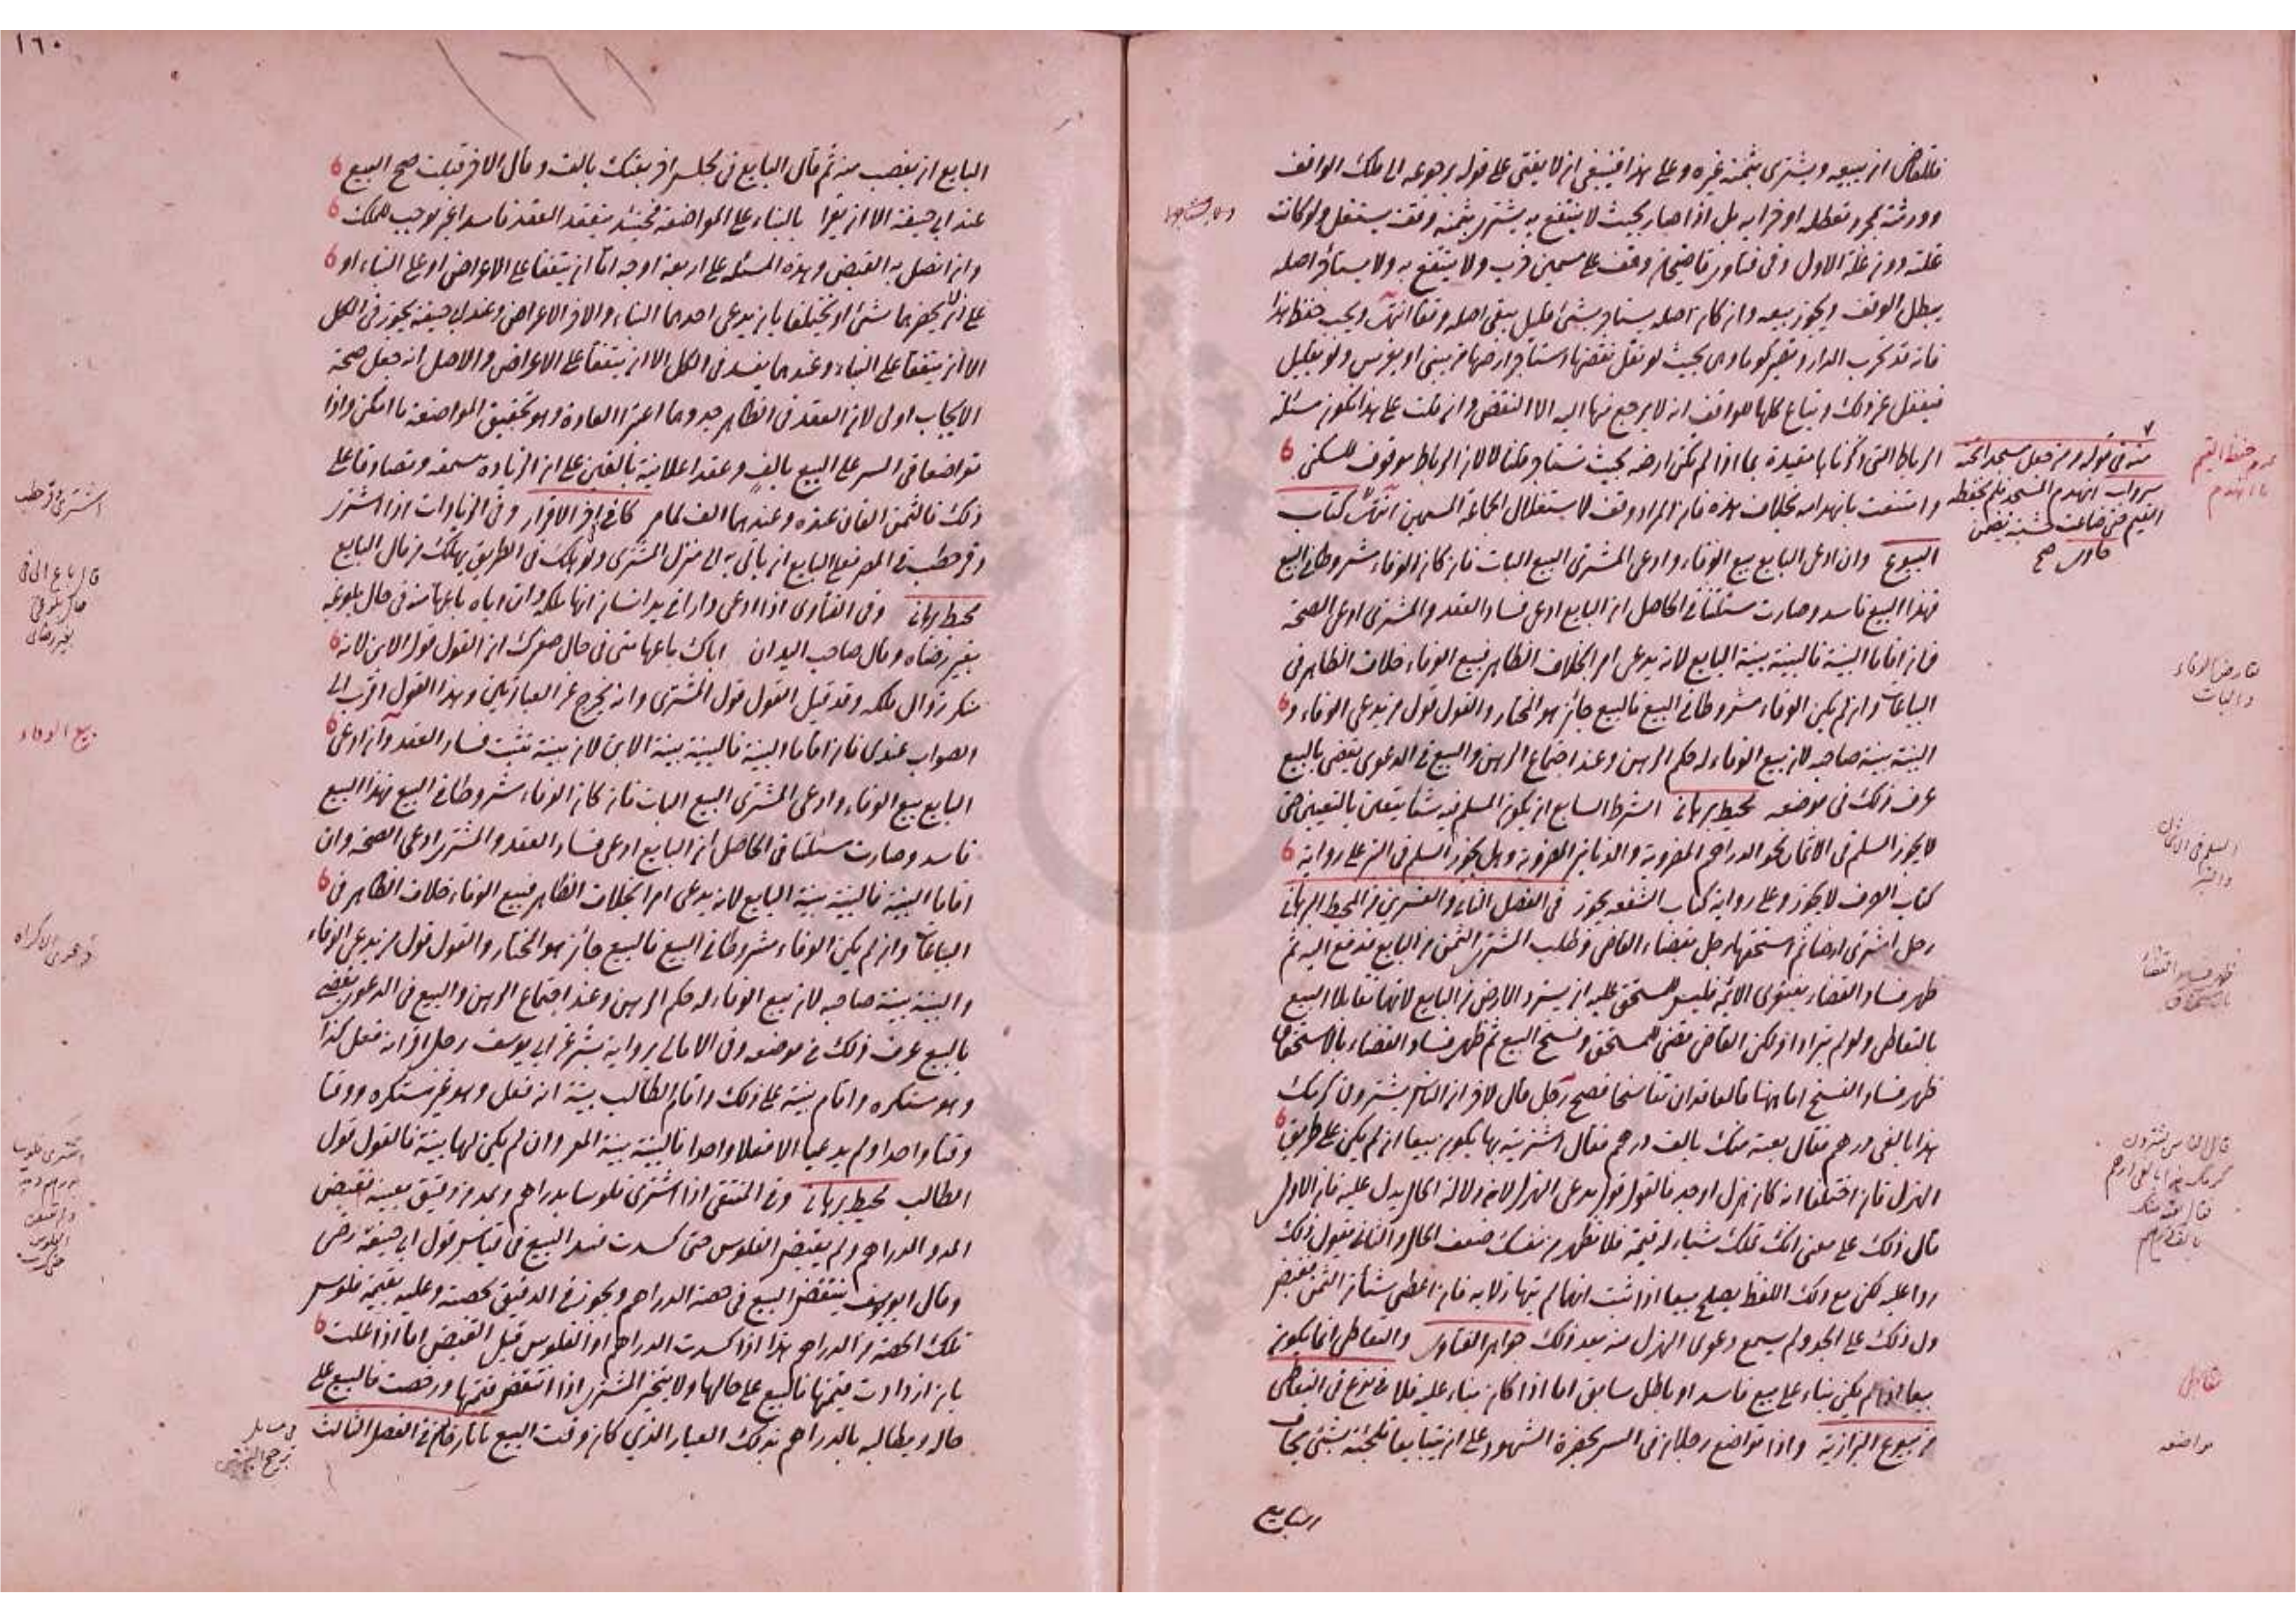 فللقاضى ان يبيعه ويشترى بثمنه غيره وعلى هذا فينبغى ان لا يفتى على قوله برجوعه الى ملك الواقف
وورثته بمجرد تعطله او خرابه بل اذا صار بحيث لا ينتفع به يشترى بثمنه وقف يستغل ولو كانت
غلته دون غلة الاول وفى فتاوى قاضيخان وقف على مسمين خرب ولا ينتفع به ولا يستأجر اصله
يبطل الوقف ويجوز بيعه وان كان اصله يستأجر بشئ قليل يبقى اصله وقفا انتهى ويجب حفظ هذا
فانه قد تخرب الدار وتصير كوما وهى بحيث لو نقل نقضها استأجر ارضها من يبنى او يغرس ولو بقليل
فيغفل عن ذلك وتباع كلها للواقف انه لا يرجع منها اليه الا النقض وان قلت على هذا تكون مسئلة
الرباط التى ذكرناها مقيدة بما اذا لم تكن ارضه بحيث تستأجر قلنا لا لان الرباط موقوف للسكنى
وامتنعت بانهدامه بخلاف هذه فان المراد وقف لاستغلال الجماعة المسمين انتهى كتاب
البيوع وان ادعى البايع بيع الوفاء وادعى المشترى البيع البات فان كان الوفاء شروطا فى البيع
فهذا البيع فاسد وصارت مسئلتنا فى الحاصل ان البايع ادعى فساد العقد والمشترى ادعى الصحة
فان اقاما البينة فالبينة بينة البايع لانه يدعى امرا بخلاف الظاهر فبيع الوفاء خلاف الظاهر فى
البياعات وان لم يكن الوفاء مشروطا فى البيع فالبيع جائز هو المختار والقول قول من يدعى الوفاء و
البينة بينة صاحبه لان بيع الوفاء له حكم الرهن وعند اجتماع الرهن والبيع فى الدعوى يقضى بالبيع
عرف ذلك فى موضعه محيط برهانى الشرط السابع ان يكون المسلم فيه شيئا يتعين بالتعيين حتى
لا يجوز السلم فى الاثمان نحو الدراهم المضروبة والدنانير المضروبة وهل يجوز السلم فى التبر على رواية
كتاب الصرف لا يجوز وعلى رواية كتاب الشفعة يجوز فى الفصل الثانى والعشرين من المحيط البرهانى
رجل اشترى ارضا ثم استحقها رجل بقضاء القاضى وطلب المشترى الثمن من البايع فدفع اليه ثم
ظهر فساد القضاء بفتوى الائمة فليس للمستحق عليه ان يسترد الارض من البايع لانهما تقايلا البيع
بالتعاطى ولو لم يترادا ولكن القاضى قضى للمستحق وفسخ البيع ثم ظهر فساد القضاء بالاستحقاق
ظهر فساد الفسخ اما ههنا فالعاقدان تفاسخا فصح رجل قال لاخر ان الناس يشترون كرمك
هذا بالفى درهم فقال بعته منك بالف درهم فقال اشتريته بها يكون بيعا ان لم يكن على طريق
الهزل فان اختلفا انه كان هزل او جد فالقول قول يدعى الهزل لانه دلالة الحال يدل عليه فان الاول
قال ذلك على معنى انك تملك شيئا له قيمة فلا تظهر من نفسك ضعف الحال والثانى يقول ذلك
ردا عليه لكن مع ذلك اللفظ يصلح بيعا اذا ثبت انهما لم يتهازلا به فان اعطى شيئا من الثمن فقبض
دل ذلك على الجد ولم يسمع دعوى الهزل منه بعد ذلك جواهر الفتاوى والتعاطى انما يكون
بيعا اذا لم يكن بناء على بيع فاسد او باطل سابق اما اذا كان بناء عليه فلا فى نوع فى التعاطى
من بيوع البزازية واذا تواضع رجلان فى السر بحضرة الشهود على ان يتبايعا تلجئة بشئ يخاف
البايع
منه فى قوله ومن جعل مسجدا تحته
سرداب انهدم المسجد فلم يحفظه
القيم حتى ضاعت خشبه يضمن
حاوى صح
عدم حفظ القيم
ما انهدم
تعارض الوفاء
والبات
السلم فى الاثمان
والتبر
قال الناس يشترون
كرمك هذا بالفى درهم
فقال بعته منك
بالف درهم
تعاطى
مواضعه
١٦٠
١٦١
البايع ان يغصب منه ثم قال البايع فى مجلس اخر بعتك بالف وقال الاخر قبلت صح البيع
عند ابى حنيفة الا ان يقرا بالبناء على المواضعة فحينئذ ينعقد العقد فاسدا غير موجب للملك
وان اتصل به القبض وهذه المسئلة على اربعة اوجه اما ان يتفقا على الاعراض او على البناء او
على انه لم يحضرهما شئ او يختلفا بان يدعى احدهما البناء والاخر الاعراض وعند ابى حنيفة يجوز فى الكل
الا ان يتفقا على البناء وعندهما يفسد فى الكل الا ان يتفقا على الاعراض والاصل انه جعل صحة
الايجاب اولى لان العقد فى الظاهر جد وهما اعتبرا العادة وهو تحقيق المواضعة ما امكن واذا
تواضعا فى السر على البيع بالف وعقدا علانية بالفين على ان الزيادة سمعة وتصادقا على
ذلك فالثمن الفان عنده وعندهما الف لما مر كافى من الاقرار وفى الزيادات اذا اشترى
وقر حطب فى المصر فعلى البايع ان يأتى به الى منزل المشترى ولو هلك فى الطريق يهلك من مال البايع
محيط برهانى وفى الفتاوى اذا ادعى دارا فى يد انسان انها ملكه وان اباه باعها منه فى حال بلوغه
بغير رضاه وقال صاحب اليد ان اباك باعها منى فى حال صغرك ان القول قول الابن لانه
منكر زوال ملكه وقد قيل القول قول المشترى وانه يخرج عن العبارتين وهذا القول اقرب الى
الصواب عندى فان اقاما البينة فالبينة بينة الابن لان بينته تثبت فساد العقد وان ادعى
البايع بيع الوفاء وادعى المشترى البيع البات فان كان الوفاء شروطا فى البيع فهذا البيع
فاسد وصارت مسئلتنا فى الحاصل ان البايع ادعى فساد العقد والمشترى ادعى الصحة وان
اقاما البينة فالبينة بينة البايع لانه يدعى امرا بخلاف الظاهر فبيع الوفاء خلاف الظاهر فى
البياعات وان لم يكن الوفاء مشروطا فى البيع فالبيع جائز هو المختار والقول قول من يدعى الوفاء
والبينة بينة صاحبه لان بيع الوفاء له حكم الرهن وعند اجتماع الرهن والبيع فى الدعوى يقضى
بالبيع عرف ذلك فى موضعه وفى الامالى برواية بشر عن ابى يوسف رجل اقر انه فعل كذا
وهو مستكره واقام بينة على ذلك واقام الطالب بينة انه فعل وهو غير مستكره ووقتا
وقتا واحدا ولم يدعيا الا فعلا واحدا فالبينة بينة المقر وان لم يكن لهما بينة فالقول قول
الطالب محيط برهانى وفى المنتقى اذا اشترى فلوسا بدراهم وبمد من دقيق بعينه فقبض
المد والدراهم ولم يقبض الفلوس حتى كسدت فسد البيع فى قياس قول ابى حنيفة رضى
وقال ابو يوسف ينتقض البيع فى حصة الدراهم ويجوز فى الدقيق بحصته وعليه بقيمة فلوس
تلك الحصة من الدراهم هذا اذا كسدت الدراهم او الفلوس قبل القبض اما اذا غلت
بان ازدادت قيمتها فالبيع على حالها ولا يتخير المشترى اذا انتقض قيمتها ورخصت فالبيع على
حاله ويطالبه بالدراهم بذلك العيار الذى كان وقت البيع تاتارخان فى الفصل الثالث
فى مسايل
ترجح البينتين
اشترى وقر حطب
قال باع ابى فى
حال بلوغى
بغير رضائى
بيع الوفاء
دعوى الاكراه
اشترى فلوسا